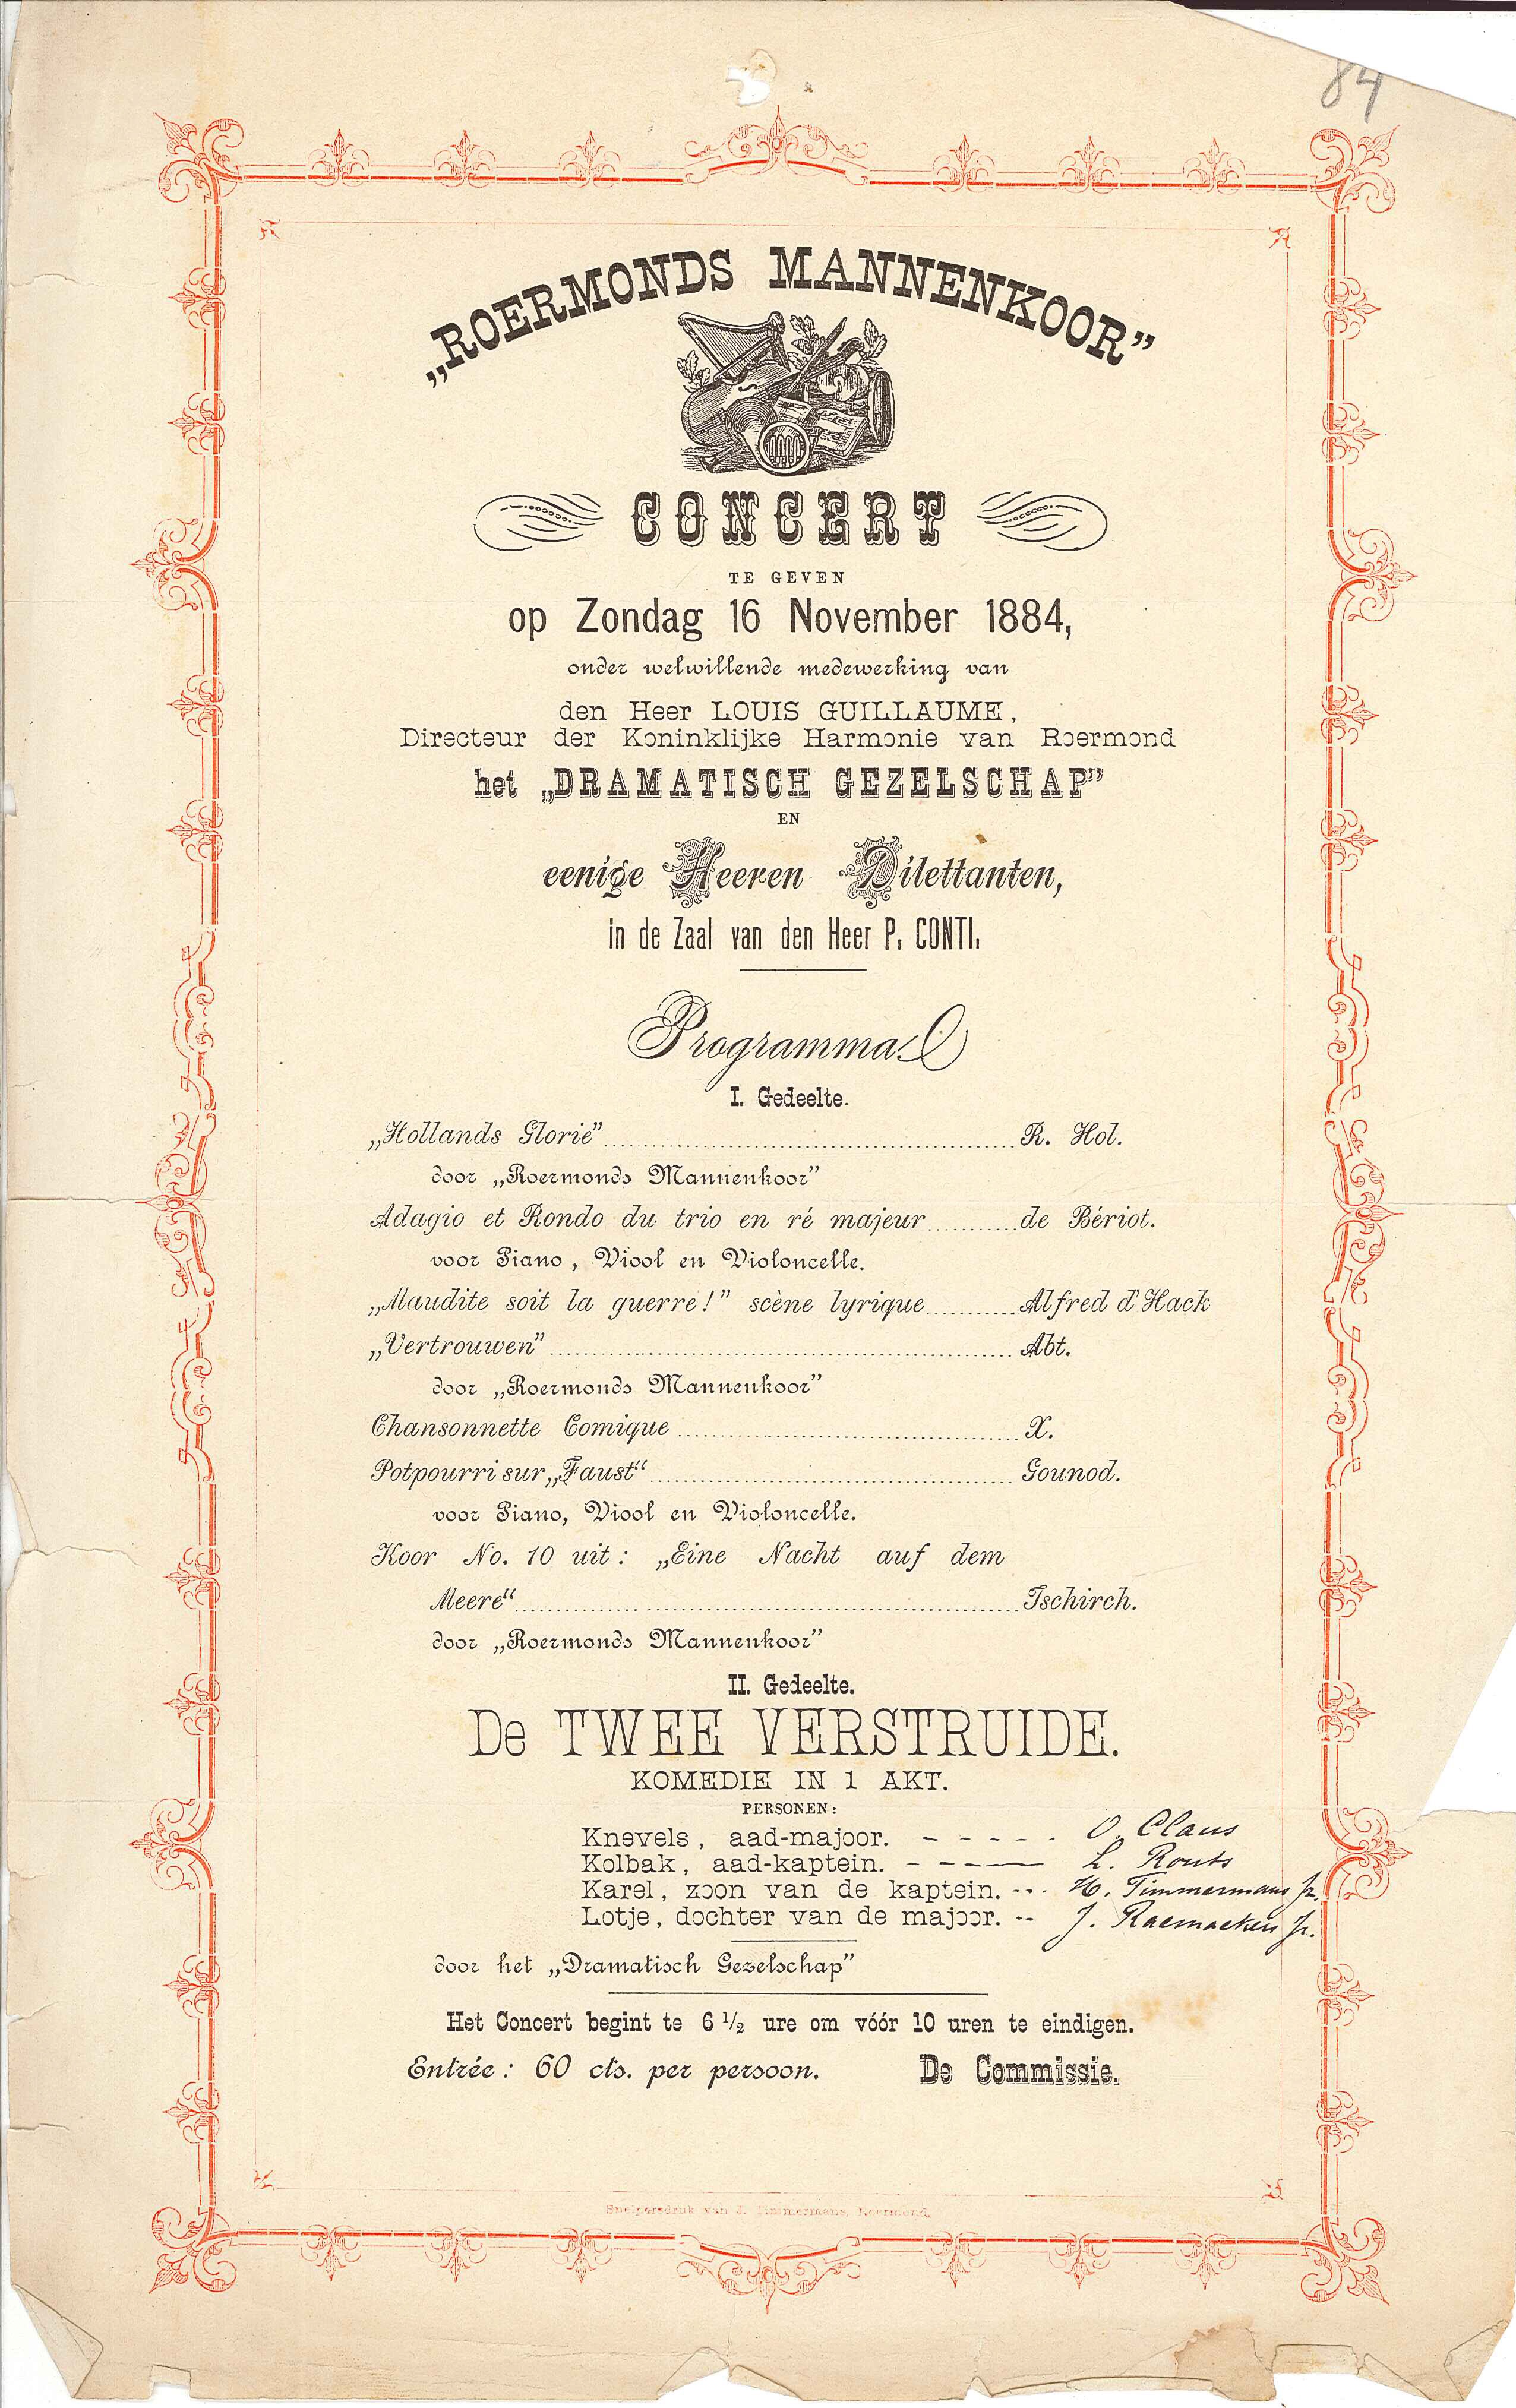 84
„ROERMONDS MANNENKOOR”
CONCERT
TE GEVEN
op Zondag 16 November 1884,
onder welwillende medewerking van
den Heer LOUIS GUILLAUME,
Directeur der Koninklijke Harmonie van Roermond
het „DRAMATISCH GEZELSCHAP”
EN
eenige Heeren Dilettanten,
in de Zaal van den Heer P. CONTI.
Programma
I. Gedeelte.
„Hollands Glorie” R. Hol.
door „Roermonds Mannenkoor”
Adagio et Rondo du trio en ré majeur de Bériot.
voor Piano, Viool en Violoncelle.
„Maudite soit la guerre!” scène lyrique Alfred d'Hack
„Vertrouwen” Abt.
door „Roermonds Mannenkoor”
Chansonnette Comique X.
Potpourri sur „Faust“ Gounod.
voor Piano, Viool en Violoncelle.
Koor No. 10 uit: „Eine Nacht auf dem
Meere“ Tschirch.
door „Roermonds Mannenkoor”
II. Gedeelte.
De TWEE VERSTRUIDE.
KOMEDIE IN 1 AKT.
PERSONEN:
Knevels, aad-majoor. - - - - - O. Claus
Kolbak, aad-kaptein. - - - — L. Routs
Karel, zoon van de kaptein. - - - H. Timmermans Jr.
Lotje, dochter van de majoor. - - J. Raemaekers Jr.
door het „Dramatisch Gezelschap”
Het Concert begint te 6 1/2 ure om vóór 10 uren te eindigen.
Entrée: 60 cts. per persoon. De Commissie.
Snelpersdruk van J. Timmermans, Roermond.